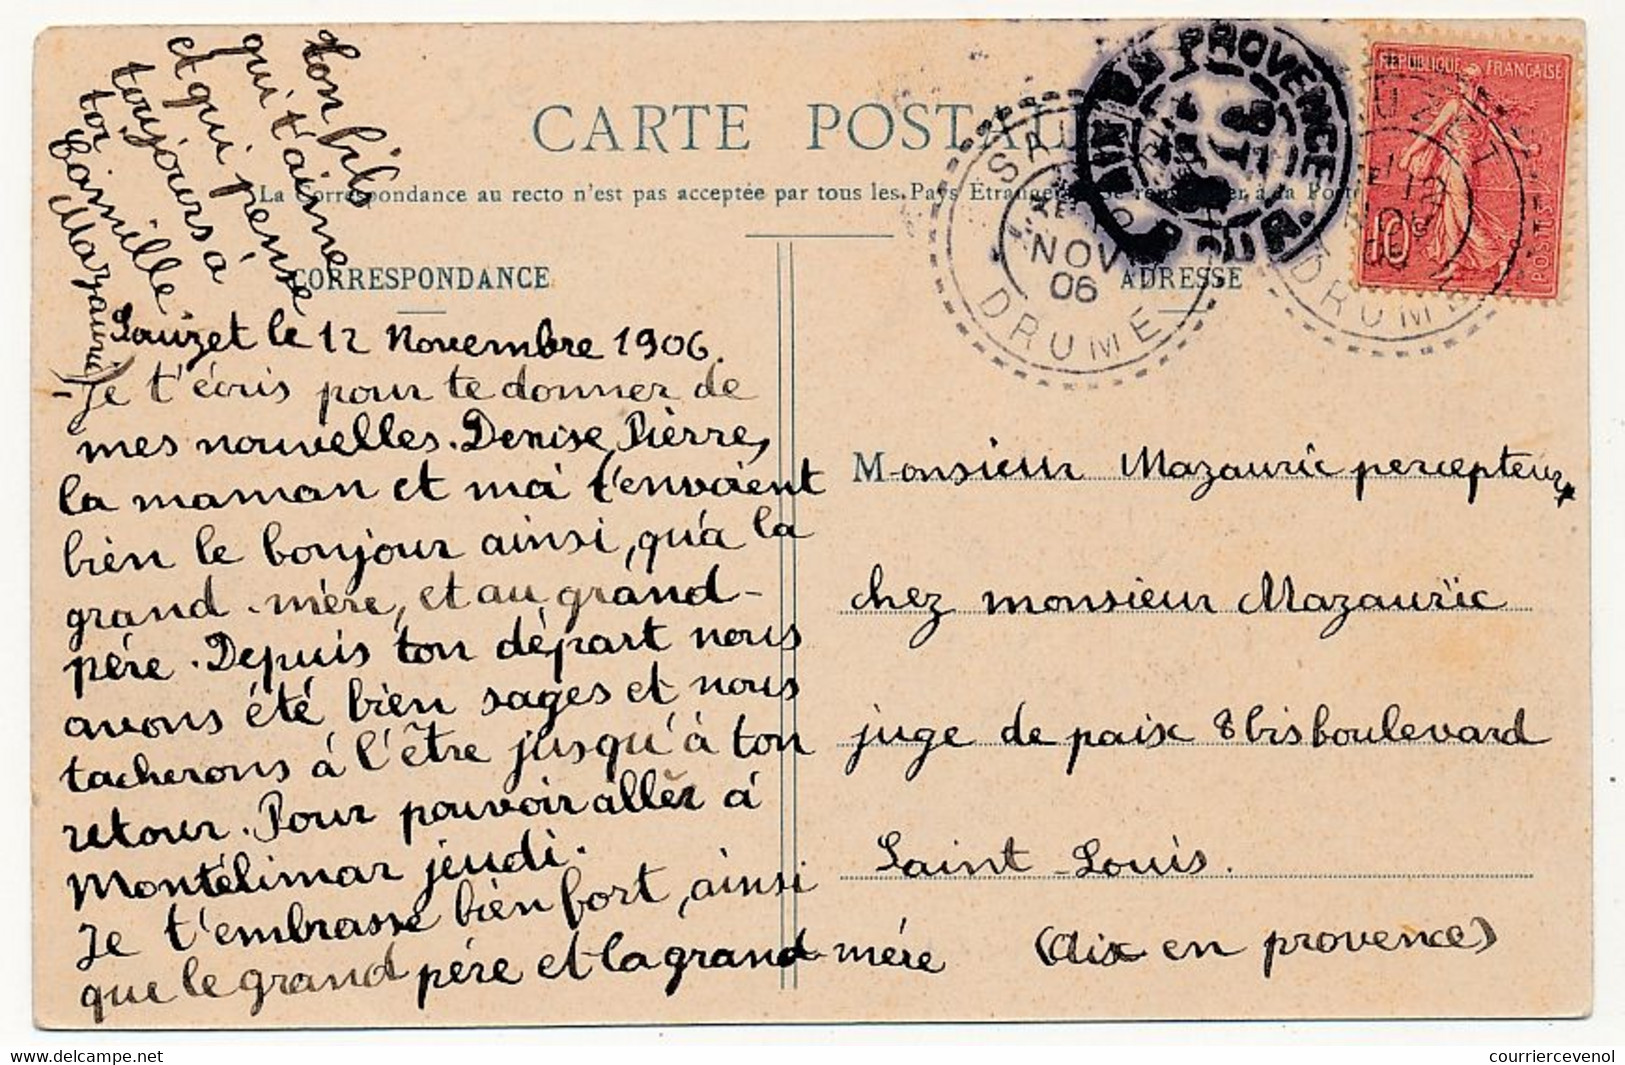 CARTE POSTALE
La Correspondance au recto n'est pas acceptée par tous les Pays Étrangers
CORRESPONDANCE
ADRESSE
Sauzet le 12 Novembre 1906.
Je t'écris pour te donner de
mes nouvelles. Denise, Pièrre,
la maman et moi t'envoient
bien le bonjour ainsi, qu'a la
grand-mère, et au grand-
père. Depuis ton départ nous
avons été bien sages et nous
tacherons à l'être jusqu'à ton
retour. Pour pouvoir aller à
Montélimar jeudi.
Je t'embrasse bien fort, ainsi
que le grand père et la grand-mère
Ton fils
qui t'aime
et qui pense
toujours à
toi
Camille
Mazauric
Monsieur Mazauric percepteur
chez monsieur Mazauric
juge de paix 8 bis boulevard
Saint-Louis.
(Aix en provence)
RÉPUBLIQUE FRANÇAISE
10
POSTES
NOV
06
DROME
12
NOV
06
DROME
PROVENCE
courriercevenol